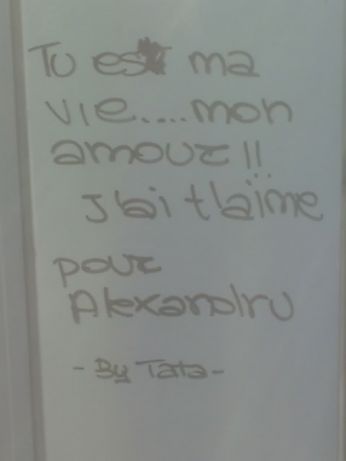 Tu es ma
vie....mon
amour!!
J'ai t'aïme
pour
Alexandru
- By Tata -